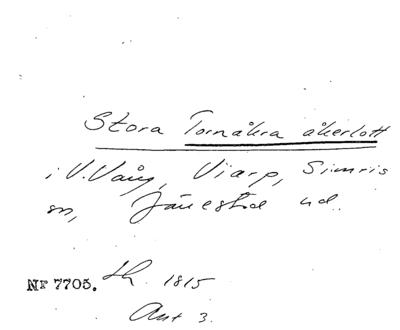 Stora Tornåkra åkerlott
i V. Vång, Viarp, Simris
sn, Järrestad hd.
Nr 7705. Lh. 1815
Akt 3.